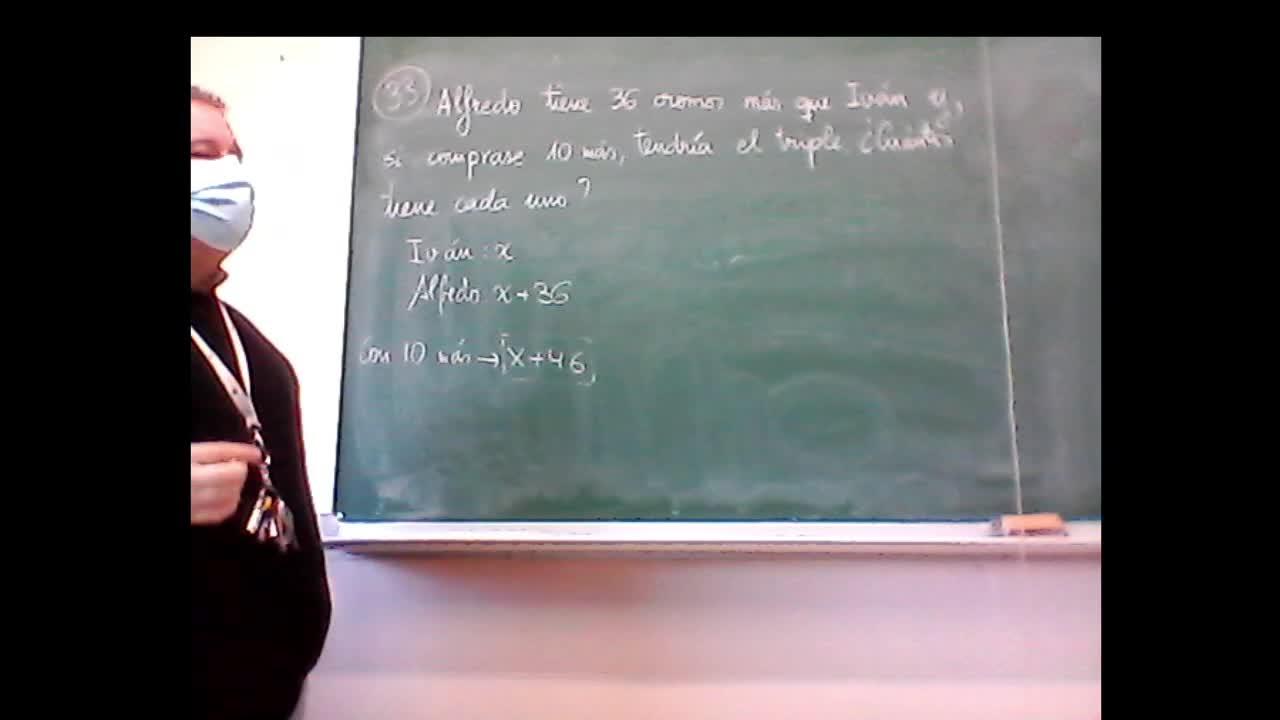 33 Alfredo tiene 36 cromos más que Iván y,
si comprase 10 más, tendría el triple ¿Cuántos
tiene cada uno?
Iván: x
Alfredo x+36
Con 10 más → x+46